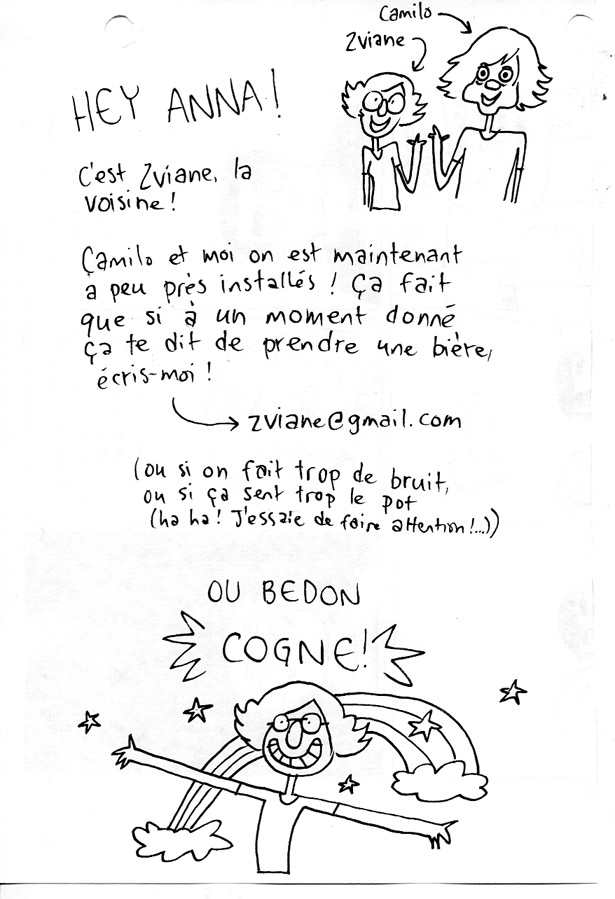 Camilo
Zviane
HEY ANNA!
C'est Zviane, la
voisine!
Camilo et moi on est maintenant
a peu près installés! Ça fait
que si à un moment donné
ça te dit de prendre une bière,
écris-moi!
zviane@gmail.com
(ou si on fait trop de bruit,
ou si ça sent trop le pot
(ha ha! J'essaie de faire attention!...))
OU BEDON
COGNE!